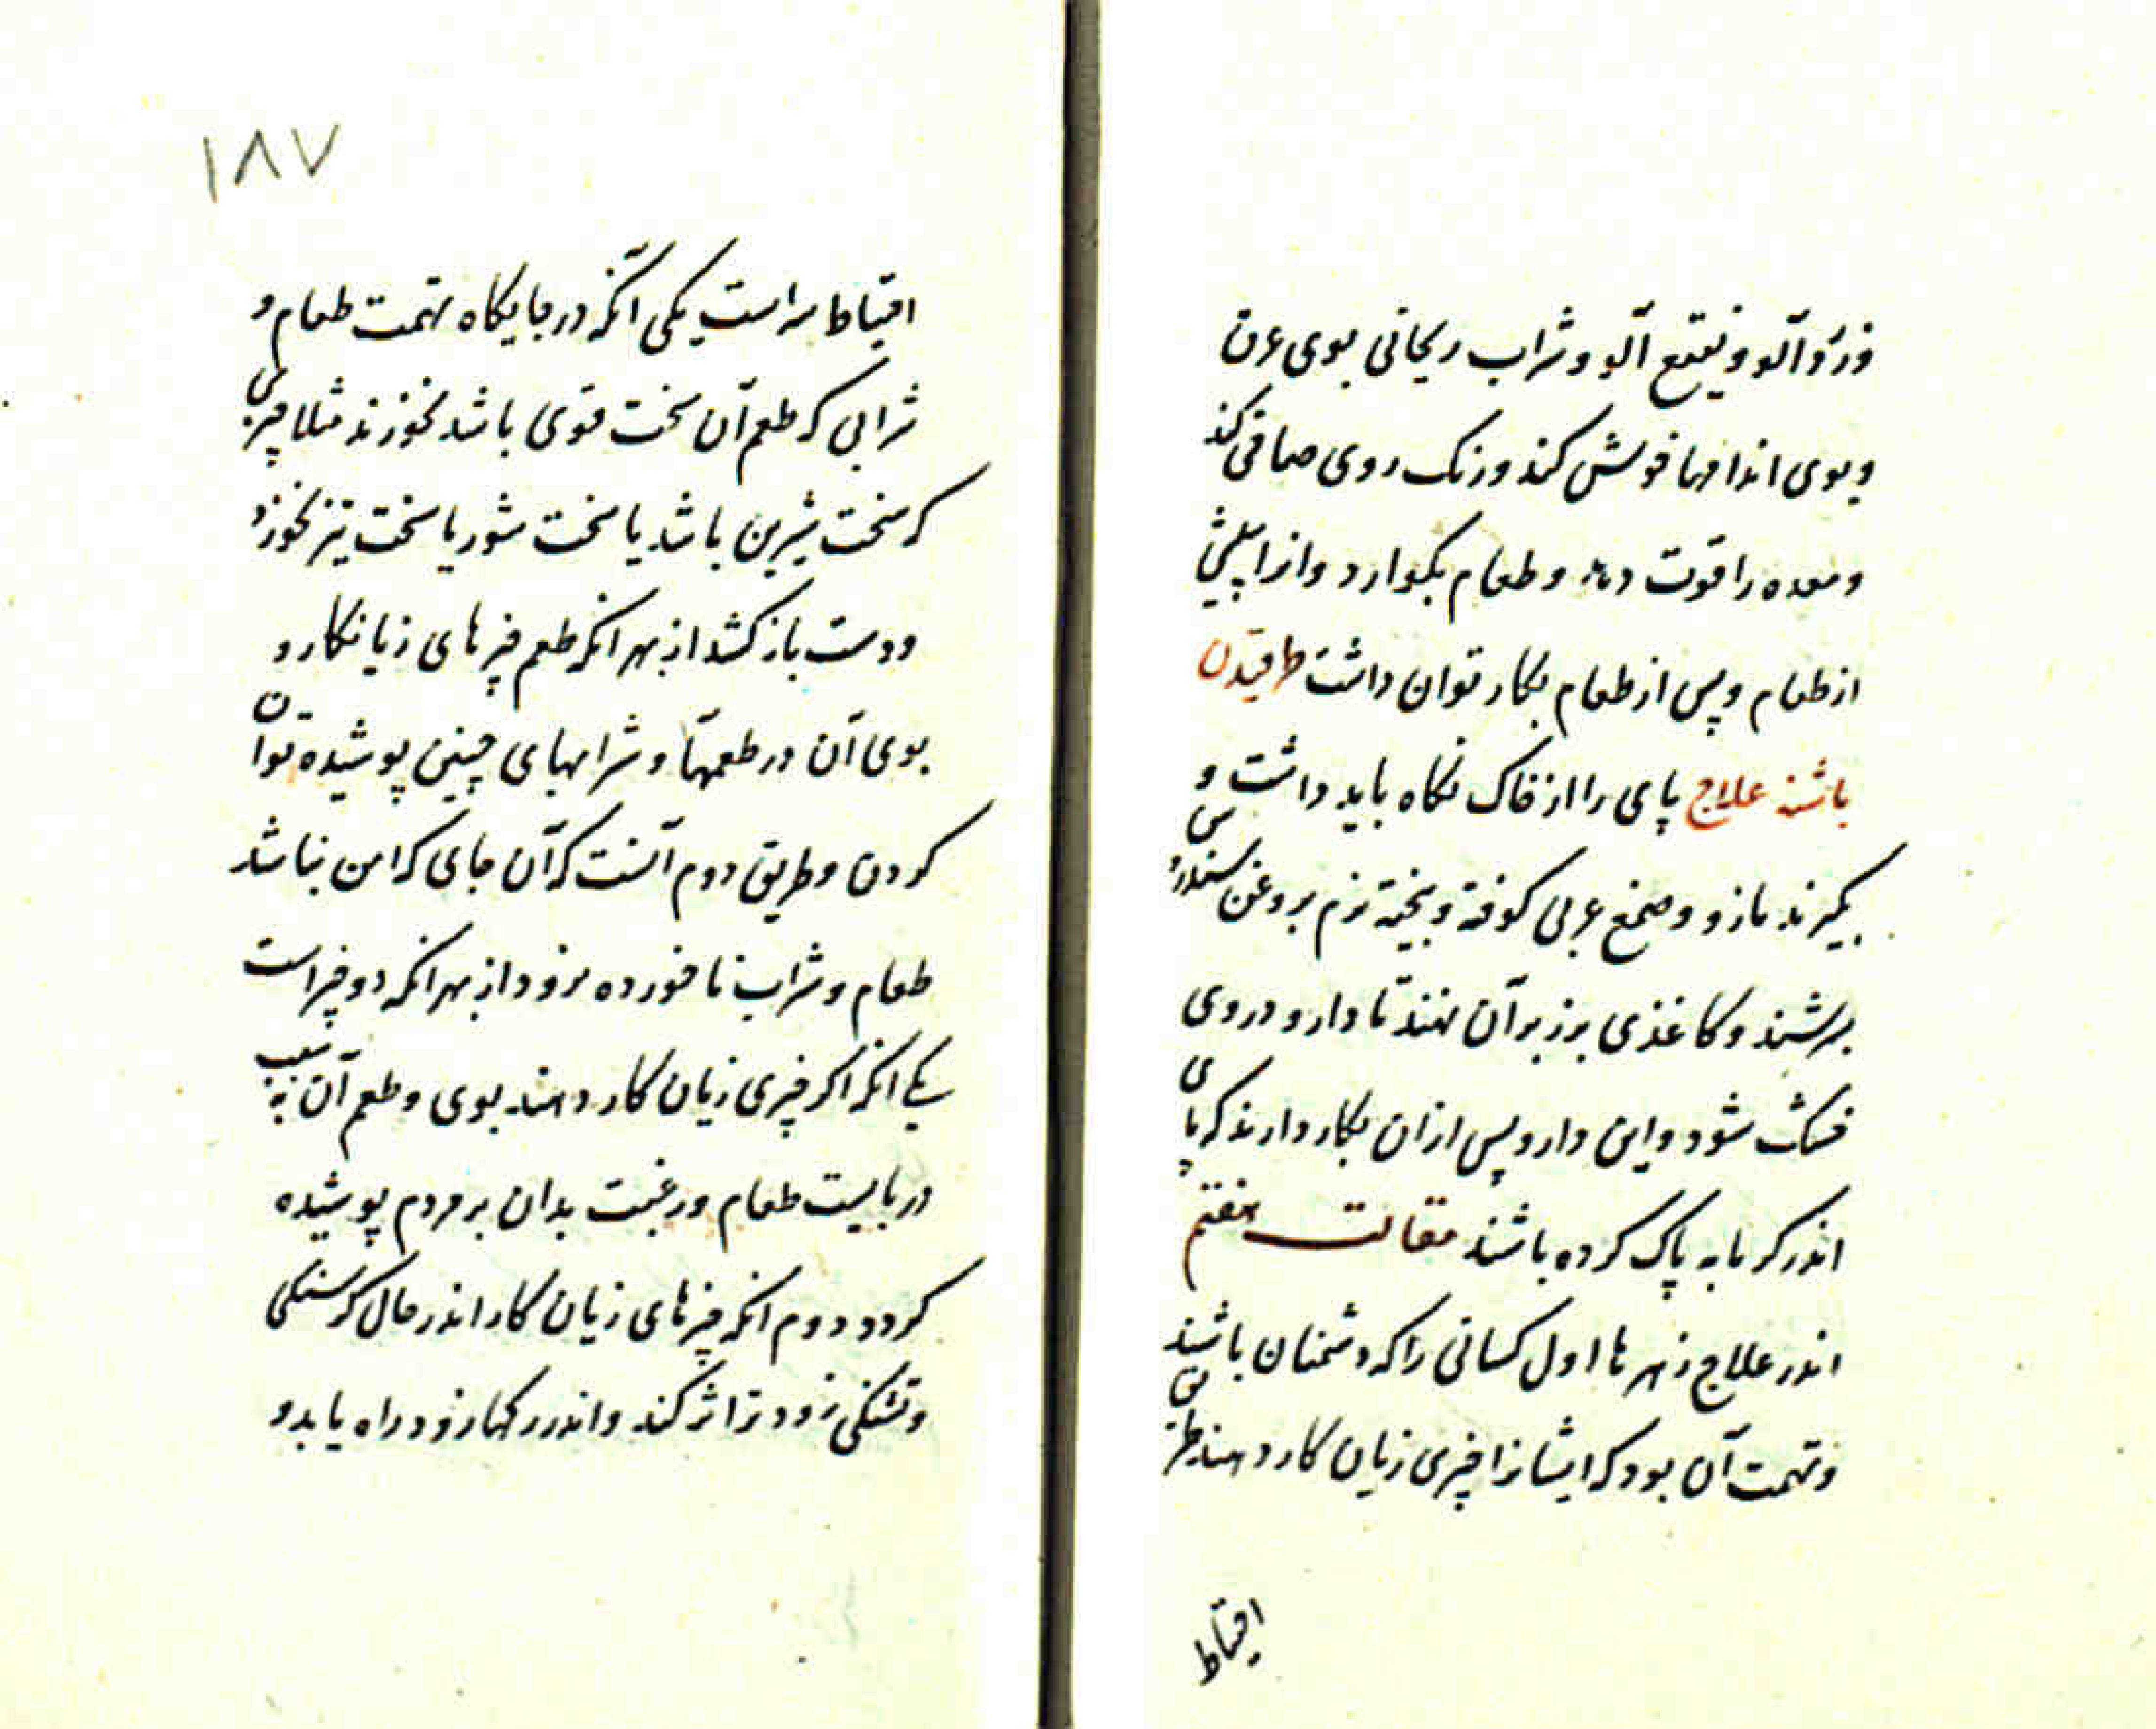 وزردآلو و نقیع آلو و شراب ریحانی بوی عرق
و بوی اندامها خوش کند و رنک روی صافی کند
و معده را قوت دهد و طعام بکوارد و از پیش
از طعام و پس از طعام بکار توان داشت طرقیدن
باشنه علاج پای را از خاک نکاه باید داشت و
بکیرند مازو و صمغ عربی کوفته و بیخته نرم بروغن سندروس
بسرشند و کاغذی بر زبر آن نهند تا دارو در وی
خشک شود و این دارو پس ازان بکار دارند که پای
اندر کرمابه پاک کرده باشند مقالت هفتم
اندر علاج زهرها اول کسانی را که دشمنان باشند
و تهمت آن بود که ایشانرا چیزی زیان کار دهند طریق
احتیاط
۱۸۷
احتیاط سه است یکی آنکه در جایکاه تهمت طعام و
شرابی که طعم آن سخت قوی باشد نخورند مثلا چیزی
که سخت شیرین باشد یا سخت شور یا سخت تیز نخورد
و دست باز کشد از بهر انکه طعم چیزهای زیانکار و
بوی آن در طعمها و شرابهای چنین پوشیده توان
کردن و طریق دوم آنست که آن جای که امن نباشد
طعام و شراب ناخورده نرود از بهر انکه دو چیز است
یکی انکه اکر چیزی زیان کار دهند بوی و طعم آن بسبب
دربایست طعام و رغبت بدان بر مردم پوشیده
کردد دوم انکه چیزهای زیان کار اندر حال کرسنکی
و تشنکی زودتر اثر کند و اندر رکها زود راه یابد و